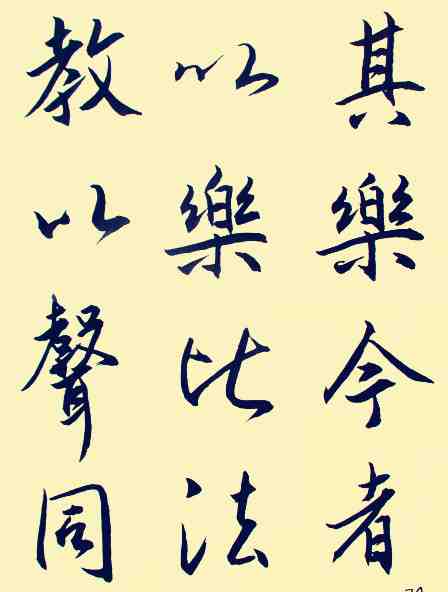 其樂今者
以樂比法
教以聲同